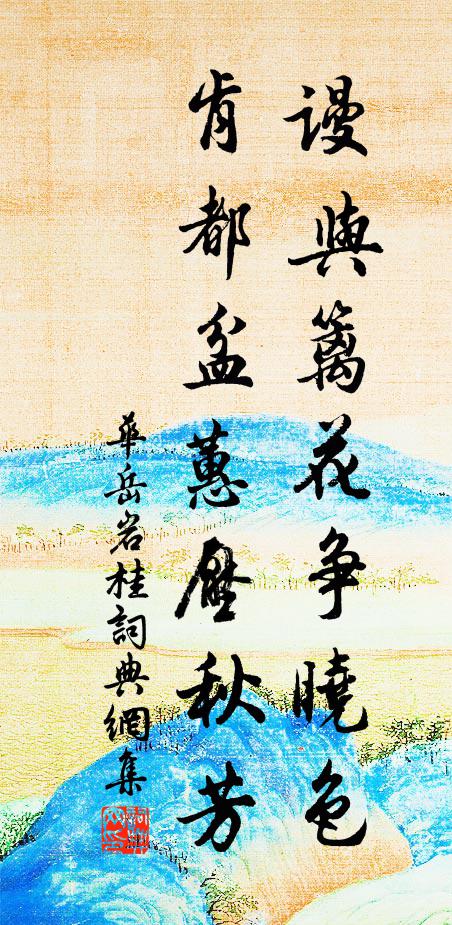 謾與篱花争曉色
肯都盆蕙壓秋芳
華岳岩桂詞典網集